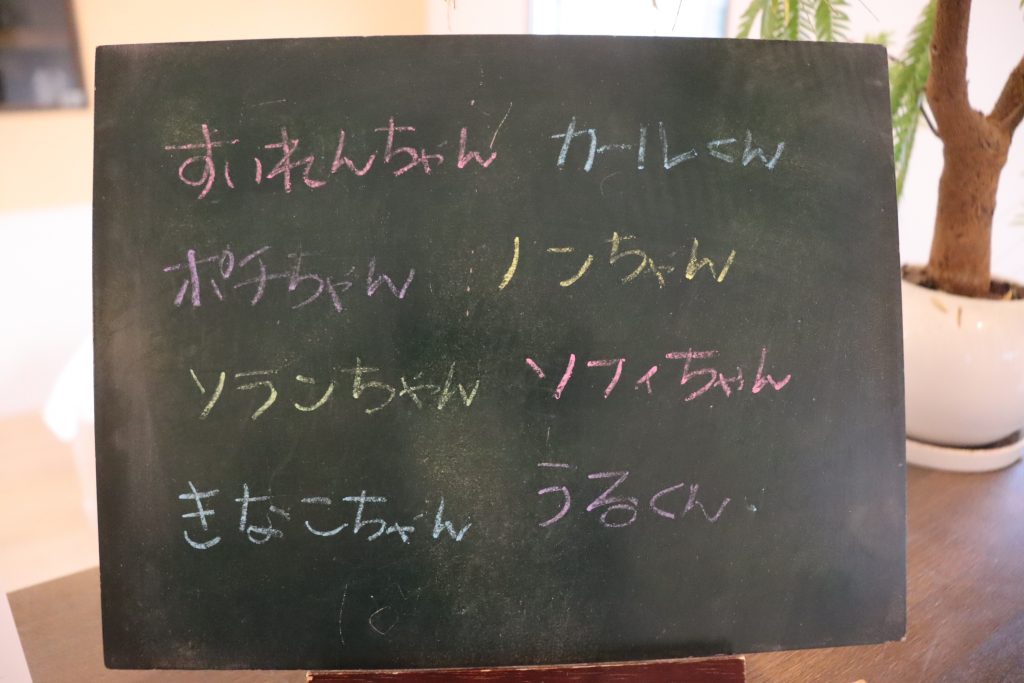 すいれんちゃん カールくん
ポチちゃん ノンちゃん
ソランちゃん ソフィちゃん
きなこちゃん うるくん